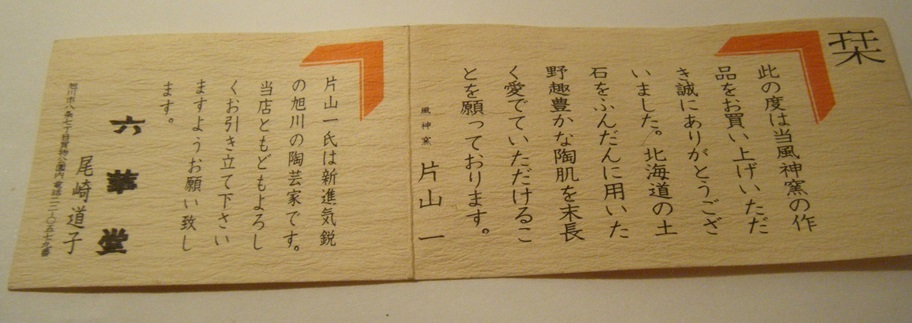 栞
此の度は当風神窯の作
品をお買い上げいただ
き誠にありがとうござ
いました。北海道の土
石をふんだんに用いた
野趣豊かな陶肌を末長
く愛でていただけるこ
とを願っております。
風神窯 片山 一
片山一氏は新進気鋭
の旭川の陶芸家です。
当店ともどもよろし
くお引き立て下さい
ますようお願い致し
ます。
六華堂
尾崎道子
旭川市八条七丁目買物公園内